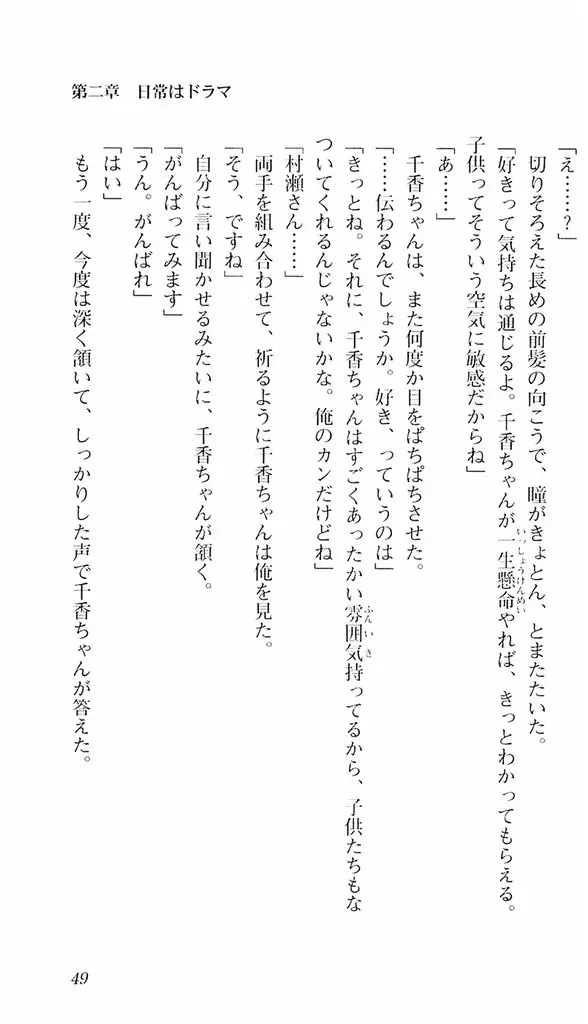 第二章　日常はドラマ
「え……？」
　切りそろえた長めの前髪の向こうで、瞳がきょとん、とまたたいた。
「好きって気持ちは通じるよ。千香ちゃんが一生懸命やれば、きっとわかってもらえる。
子供ってそういう空気に敏感だからね」
「あ……」
　千香ちゃんは、また何度か目をぱちぱちさせた。
「……伝わるんでしょうか。好き、っていうのは」
「きっとね。それに、千香ちゃんはすごくあったかい雰囲気持ってるから、子供たちもな
ついてくれるんじゃないかな。俺のカンだけどね」
「村瀬さん……」
　両手を組み合わせて、祈るように千香ちゃんは俺を見た。
「そう、ですね」
　自分に言い聞かせるみたいに、千香ちゃんが頷く。
「がんばってみます」
「うん。がんばれ」
「はい」
　もう一度、今度は深く頷いて、しっかりした声で千香ちゃんが答えた。
49